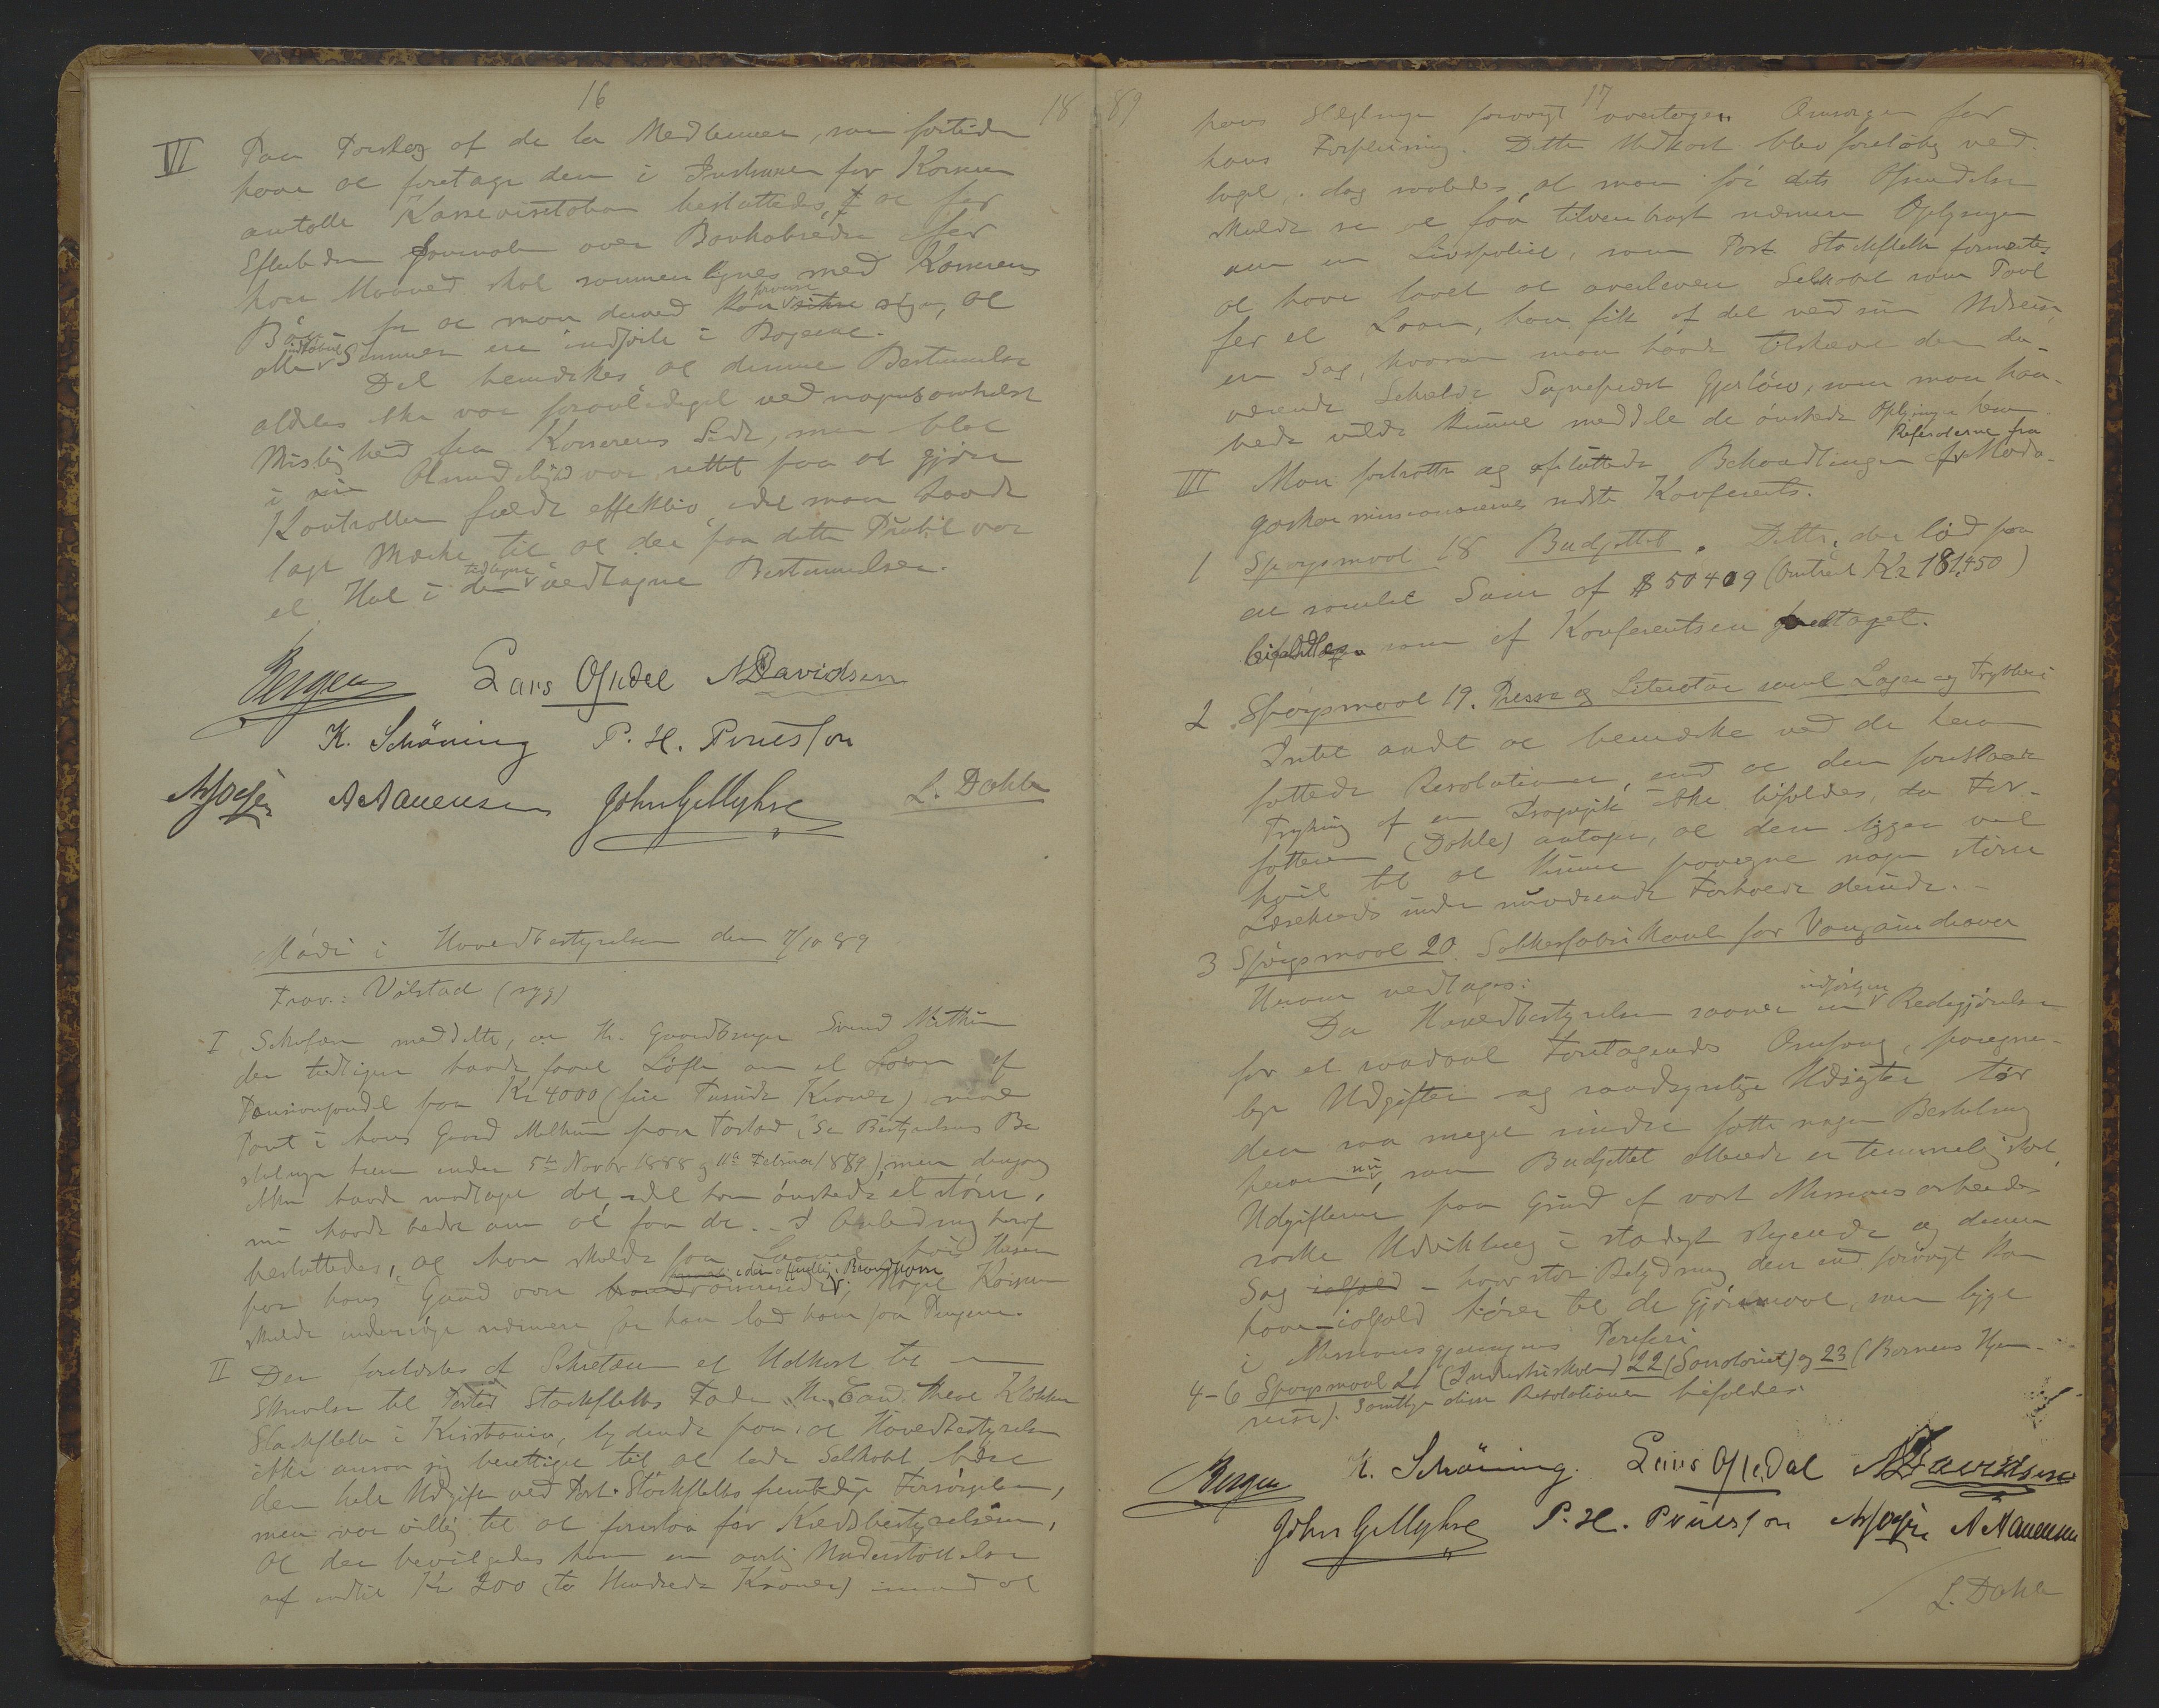 16
18
VI Paa Forslag af de to Medlemmer, som fortiden
have at foretage den i Instruxen for Kasserer
omtalte Kassevisitation besluttedes, at for
Efterleden Journalen over Bankobredre hver
hver Maaned skal sammenlignes med Kassererens
Bøger for at man derved kan prøvese sikre sig, at
alle indkomne Summer ere indførte i Bøgerne.
Det bemærkes at denne Bestemmelse
aldeles ikke var foranlediget ved nogensomhelst
Mislighed fra Kassererens Side, men blot
i sin Almindelighed var rettet paa at gjøre
Kontrollen fuldt effektiv idet man havde
lagt Mærke til at der paa dette Punkt var
et Hul i den tidligere vedtagne Bestemmelser.
Bergen Lars Oftedal N. Davidsen
K. Schöning P. H. Pruesson
A. Aanensen John G. Myhre L. Dahle
Møde i Hovedbestyrelsen den 7/10 89
Frav.: Vølstad (syg)
I Sekretæren meddelte, at Hr. Gaardbruger Svend
der tidligere havde faaet Løfte om et Laan af
Pensionsfondet paa Kr 4000 (fire Tusinde Kroner) mod
Pant i hans Gaard paa Forlod, (se Bestyrelsens Be
slutninger herom under 5te Novbr 1888 og 11te Februar 1889), men dengang
ikke havde modtaget det, idet han ønskede et større,
nu havde bedt om at faa det. I Anledning heraf
besluttedes, at han skulde faa Laanet hvis Husene
paa hans Gaard vare i den offentlige Brandkasse; Noget Kasserer
skulde undersøge nærmere før han lod ham faa Pengene.
II Der forelæstes af Sekretæren et Udkast til en
Skrivelse til Pastor Stockfleths Fader Hr. Cand. theol Klokker
Stockfleth i Kristiania, lydende paa, at Hovedbestyrelsen
ikke ansaa sig berettiget til at lade Selskabet bære
den hele Udgift ved Past. Stockfleths fremtidige Forsørgelse,
men var villig til at foreslaa for Kredsbestyrelserne,
at der bevilgedes ham en aarlig Understøttelse
af indtil Kr 200 (to Hundrede Kroner) imod at
89
17
hans Slægtninge forøvrigt overtoge Omsorgen for
hans Forpleining. Dette Udkast blev foreløbig ved-
taget, dog saaledes, at man før dets Afsendelse
skulde se at faa tilveiebragt nærmere Oplysninger
om en Livspolice, som Past. Stockfleth formentes
at have lovet at overlevere Selskabet som Pant
for et Laan, han fik af det ved sin Udreise,
en Sag, hvorom man havde tilskrevet den da-
værende Sekretær Sognepræst Gjerløw, som man haa-
bede vilde kunne meddele de ønskede Oplysninger herom.
III Man fortsatte og afsluttede Behandlingen af Referaterne fra Mada-
gaskarmissionærernes sidste Konferents.
1 Spørgsmaal 18 Budgettet. Dette, der lød paa
en samlet Sum af $ 50409 (omtrent Kr 181,450)
bifaldtes som af Konferentsen foretaget.
2 Spørgsmaal 19. Presse og Literatur samt Lager og Trykkeri
Intet andet at bemærke ved de herom
fattede Resolutioner, end at den foreslaaede
Trykning af en ikke bifaldes, da For-
fatteren (Dahle) antager, at den ligger vel
høit til at kunne paaregne nogen større
Læsekreds under nuværende Forholde derude.
3 Spørgsmaal 20. Sukkerfabrikant for Vangaindrano
Herom vedtages:
Da Hovedbestyrelsen savner en udførligere Redegjørelse
for et saadant Foretagendes Omfang, paaregne-
lige Udgifter og sandsynlige Udsigter tør
den saa meget mindre fatte nogen Beslutning
herom nu, som Budgettet allerede er temmelig stort,
Udgifterne paa Grund af vort Missionsarbeides
raske Udvikling i stadigt stigende og denne
Sag - hvor stor Betydning den end forøvrigt kan
have - iafald hører til de Gjøremaal, som ligge
i Missionsgjerningens Periferi
4-6 Spørgsmaal 21 (Industriskolen) 22 (Sanatoriet) og 23 (Børnens Hjem-
reise). Samtlige disse Resolutioner bifaldes.
Bergen K. Schöning. Lars Oftedal N. Davidsen
John G. Myhre P. H. Pruesson A. Aanensen
L. Dahle